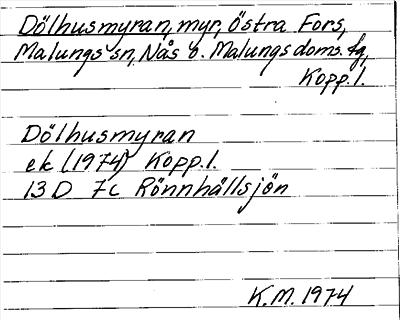 Dölhusmyran, myr, Östra Fors,
Malungs sn, Nås o. Malungs doms. fg,
Kopp. l.
Dölhusmyran
ek (1974) Kopp. l.
13 D 7c Rönnhällsjön
K.M. 1974